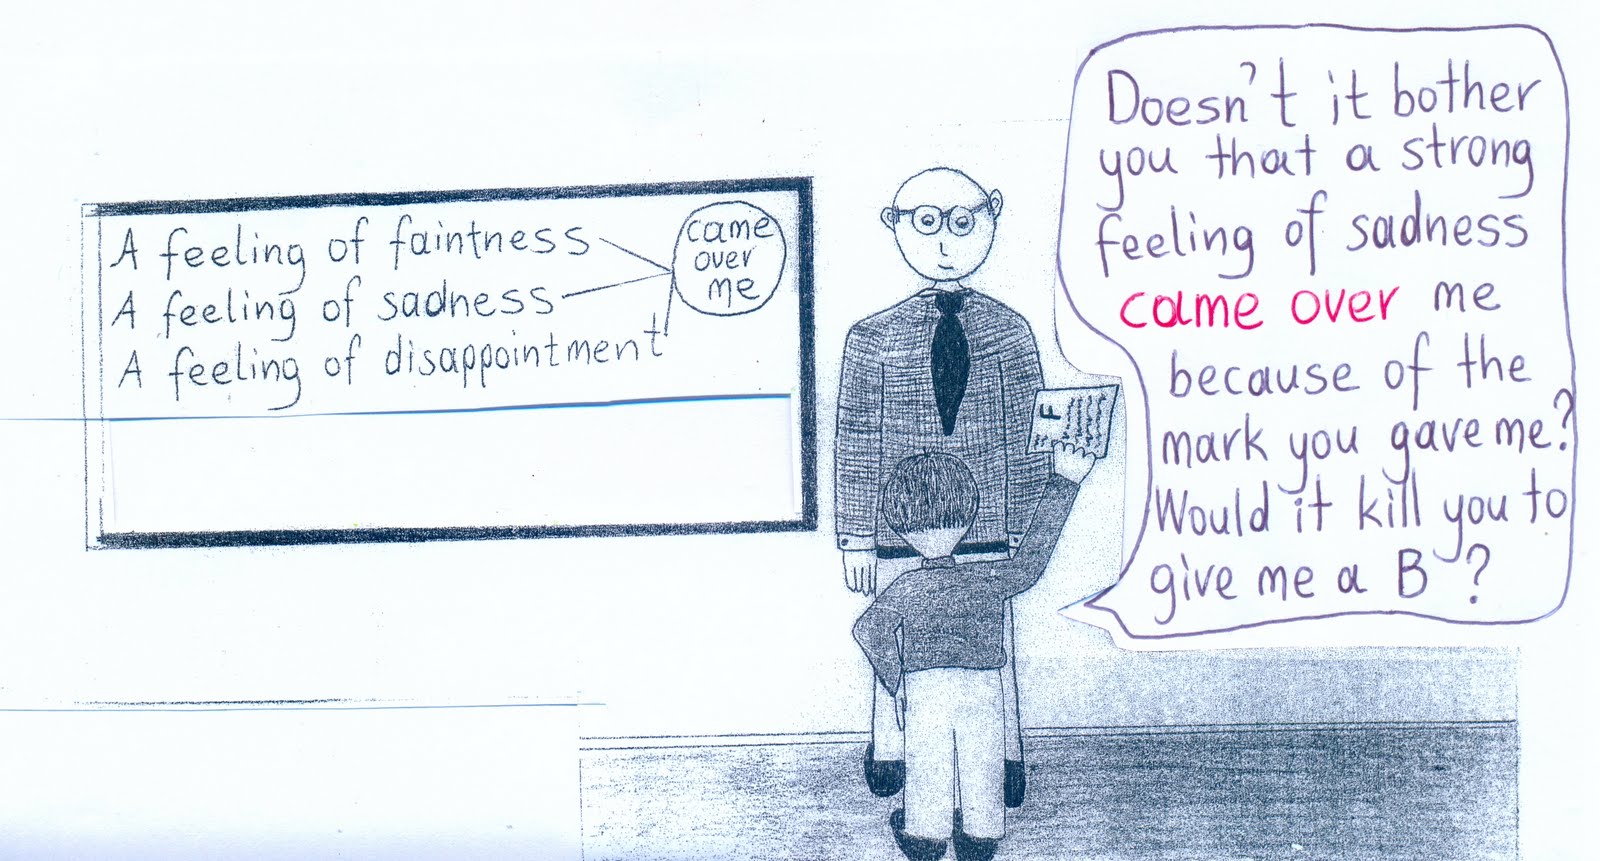 A feeling of faintness
A feeling of sadness
A feeling of disappointment
came
over
me
Doesn't it bother
you that a strong
feeling of sadness
came over me
because of the
mark you gave me?
Would it kill you to
give me a B ?
F